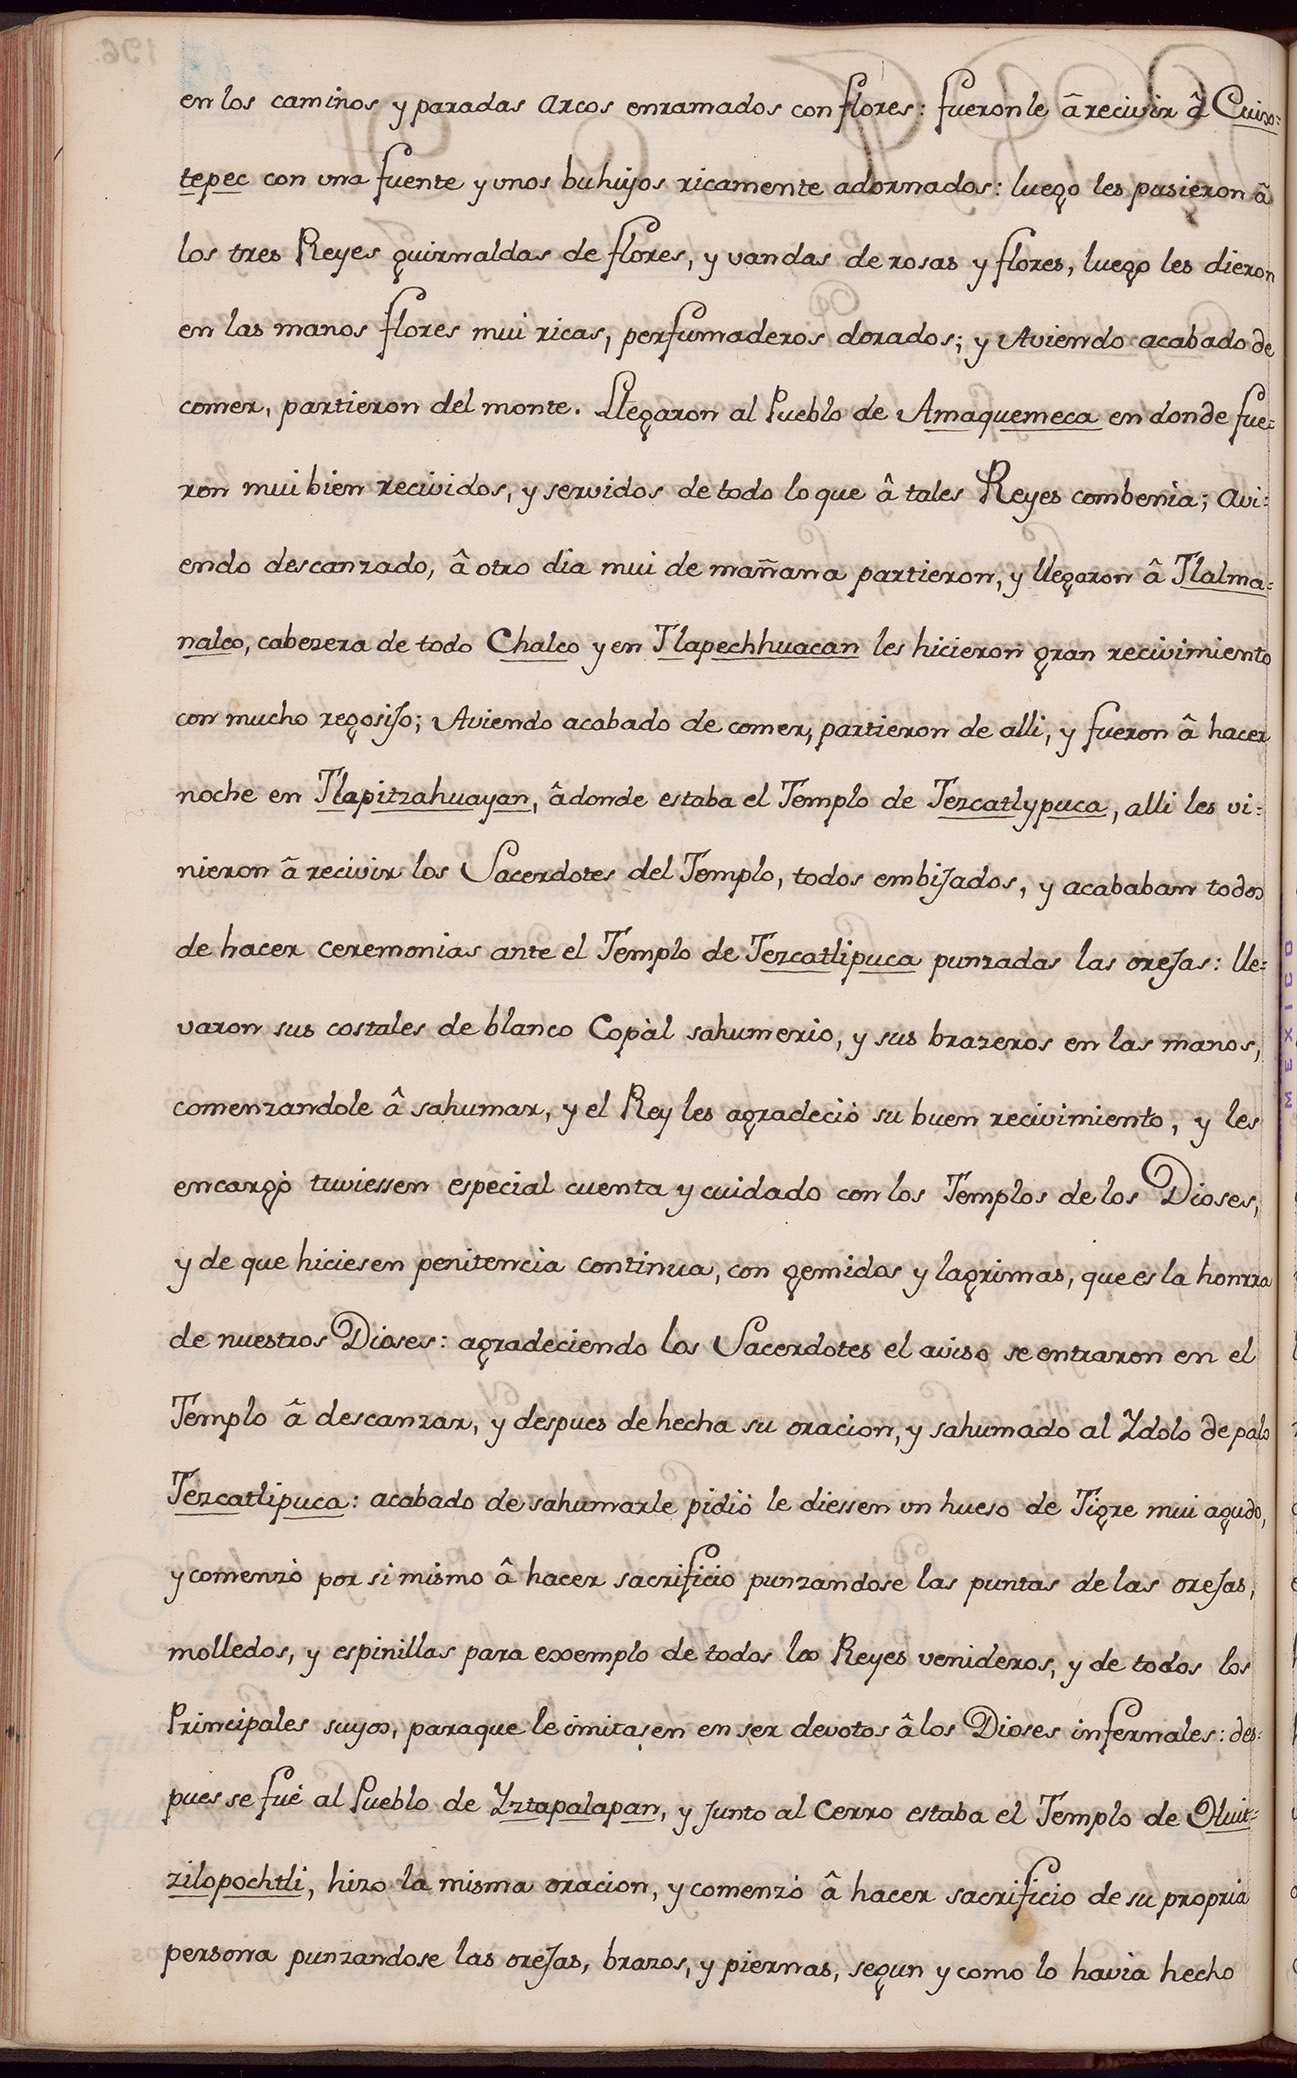 en los caminos y paradas arcos enramados con flores: fueronle â recivir â Cuixo=
tepec con una fuente y unos buhiyos ricamente adornados: luego les pusieron â
los tres Reyes guirnaldas de flores, y vandas de rosas y flores, luego les dieron
en las manos flores mui ricas, perfumaderos dorados; y Aviendo acabado de
comer, partieron del monte. Llegaron al Pueblo de Amaquemeca en donde fue=
ron mui bien recividos, y servidos de todo lo que â tales Reyes combenia; avi=
endo descanzado, â otro dia mui de mañana partieron, y llegaron â Tlalma=
nalco, cabezera de todo Chalco y en Tlapechhuacan les hicieron gran recivimiento
con mucho regosijo; Aviendo acabado de comer, partieron de alli, y fueron â hacer
noche en Tlapitzahuayan, âdonde estaba el Templo de Tezcatlypuca, alli les vi=
nieron â recivir los Sacerdotes del Templo, todos embijados, y acababan todos
de hacer ceremonias ante el Templo de Tezcatlipuca punzadas las orejas: lle=
varon sus costales de blanco Copàl sahumerio, y sus brazeros en las manos,
comenzandole â sahumar, y el Rey les agradeciò su buen recivimiento, y les
encargò tuviessen especial cuenta y cuidado con los Templos de los Dioses,
y de que hiciesen penitencia continua, con gemidos y lagrimas, que es la honrra
de nuestros Dioses: agradeciendo los Sacerdotes el aviso se entraron en el
Templo â descanzar, y despues de hecha su oracion, y sahumado al Ydolo de palo
Tezcatlipuca: acabado de sahumarle pidiò le diessen un hueso de Tigre mui agudo,
y comenzò por si mismo â hacer sacrificio punzandose las puntas de las orejas,
molledos, y espinillas para exemplo de todos los Reyes venideros, y de todos los
Principales suyos, paraque le imitasen en ser devotos â los Dioses infernales: des=
pues se fuè al Pueblo de Yztapalapan, y junto al Cerro estaba el Templo de Huit=
zilopochtli, hizo la misma oracion, y comenzò â hacer sacrificio de su propria
persona punzandose las orejas, brazos, y piernas, segun y como lo havia hecho